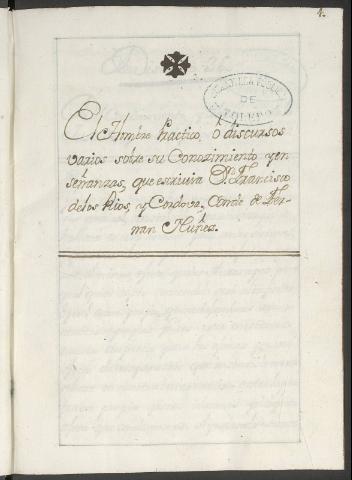 1.
BIBLIOTECA PUBLICA
DE
TOLEDO
El Hombre Practico, ó discursos
varios sobre su Conozimiento, y en
señanzas, que escrivia Dn. Francisco
de los Rios, y Cordova, Conde de Fer-
nan Nuñez.